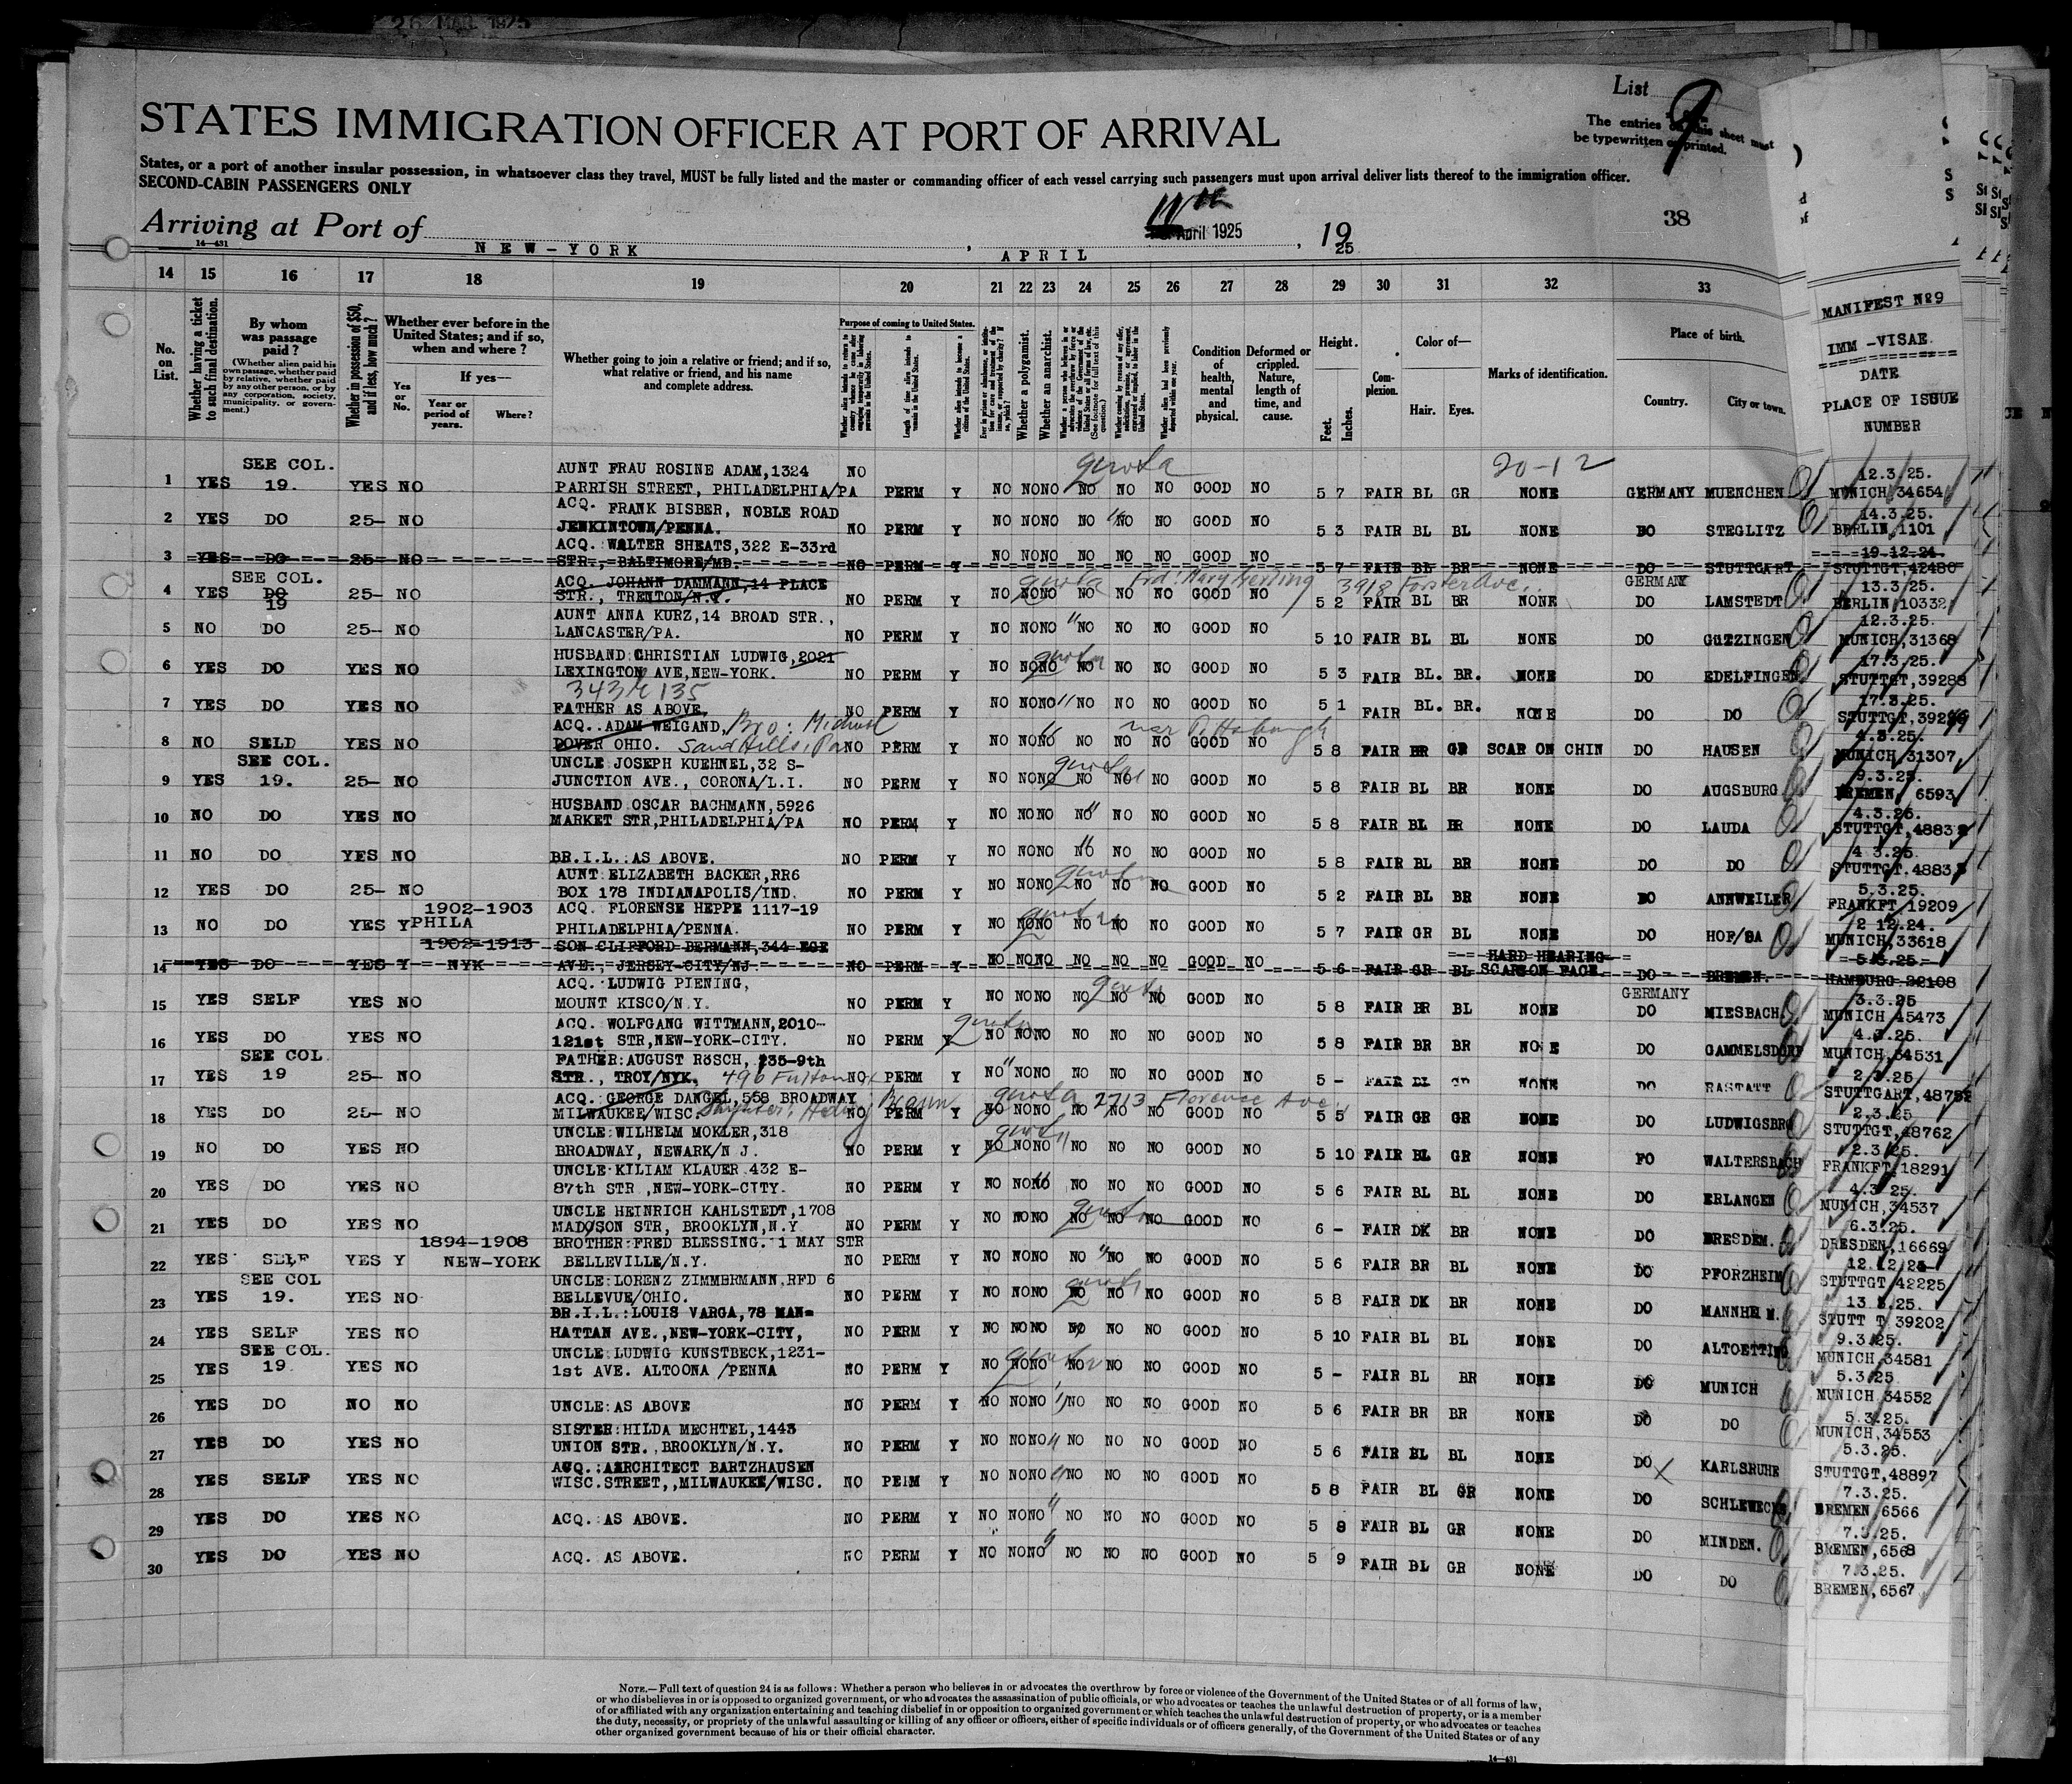 26 MAR 1925
List 9
STATES IMMIGRATION OFFICER AT PORT OF ARRIVAL
The entries on this sheet must
be typewritten or printed.
States, or a port of another insular possession, in whatsoever class they travel, MUST be fully listed and the master or commanding officer of each vessel carrying such passengers must upon arrival deliver lists thereof to the immigration officer.
SECOND-CABIN PASSENGERS ONLY
Arriving at Port of NEW-YORK, APRIL April 1925, 1925
38
14—431
14 15 16 17 18 19 20 21 22 23 24 25 26 27 28 29 30 31 32 33
No. on List.
Whether having a ticket to such final destination.
By whom was passage paid?
(Whether alien paid his own passage, whether paid by relative, whether paid by any other person, or by any corporation, society, municipality, or government.)
Whether in possession of $50, and if less, how much?
Whether ever before in the United States; and if so, when and where?
Yes or No.
If yes—
Year or period of years.
Where?
Whether going to join a relative or friend; and if so, what relative or friend, and his name and complete address.
Purpose of coming to United States.
Length of time alien intends to remain in the United States.
Whether alien intends to become a citizen of the United States.
Whether a polygamist.
Whether an anarchist.
Condition of health, mental and physical.
Deformed or crippled. Nature, length of time, and cause.
Height.
Feet.
Inches.
Complexion.
Color of—
Hair.
Eyes.
Marks of identification.
Place of birth.
Country.
City or town.
MANIFEST No9
IMM -VISAE
DATE
PLACE OF ISSUE
NUMBER
quota 20-12
1 YES SEE COL. 19. YES NO AUNT FRAU ROSINE ADAM,1324 PARRISH STREET, PHILADELPHIA/PA NO PERM Y NO NO NO NO NO NO GOOD NO 5 7 FAIR BL GR NONE GERMANY MUENCHEN 12.3.25. MUNICH,34654
2 YES DO 25- NO ACQ. FRANK BISBER, NOBLE ROAD JENKINTOWN/PENNA. NO PERM Y NO NO NO NO NO NO GOOD NO 5 3 FAIR BL BL NONE DO STEGLITZ 14.3.25. BERLIN,1101
3 YES DO 25- NO ACQ. WALTER SHEATS,322 E-33rd STR., BALTIMORE/MD. NO PERM Y NO NO NO NO NO NO GOOD NO 5 7 FAIR BL BR NONE DO STUTTGART 19.12.24. STUTTGT,42480
4 YES SEE COL. DO 19 25- NO ACQ. JOHANN DAMMANN,14 PLACE STR., TRENTON/N.Y. quota frd: Mary Gerling 3918 Forster Ave. NO PERM Y NO NO NO NO NO NO GOOD NO 5 2 FAIR BL BR NONE GERMANY DO LAMSTEDT 13.3.25. BERLIN,10332
5 NO DO 25- NO AUNT ANNA KURZ,14 BROAD STR., LANCASTER/PA. NO PERM Y NO NO NO " NO NO NO GOOD NO 5 10 FAIR BL BL NONE DO GüTZINGEN 12.3.25. MUNICH,31368
6 YES DO YES NO HUSBAND:CHRISTIAN LUDWIG,2021 LEXINGTON AVE,NEW-YORK. 343 E 135 NO PERM Y NO NO NO quota NO NO NO GOOD NO 5 3 FAIR BL. BR. NONE DO EDELFINGEN 17.3.25. STUTTGT,39288
7 YES DO YES NO FATHER AS ABOVE. NO PERM Y NO NO NO " NO NO NO GOOD NO 5 1 FAIR BL. BR. NONE DO DO 17.3.25.
8 NO SELD YES NO ACQ. ADAM WEIGAND, DOVER OHIO. Bro: Michael Sand Hills, Pa near Pittsburgh NO PERM Y NO NO NO NO NO NO GOOD NO 5 8 FAIR BR GR SCAR ON CHIN DO HAUSEN 4.3.25. MUNICH,31307
9 YES SEE COL. 19. 25- NO UNCLE JOSEPH KUEHNEL,32 S- JUNCTION AVE., CORONA/L.I. NO PERM Y NO NO NO quota NO NO NO GOOD NO 5 8 FAIR BL BR NONE DO AUGSBURG 9.3.25. BREMEN, 6593
10 NO DO YES NO HUSBAND OSCAR BACHMANN,5926 MARKET STR,PHILADELPHIA/PA NO PERM Y NO NO NO NO " NO NO GOOD NO 5 8 FAIR BL BR NONE DO LAUDA 4.3.25. STUTTGT,4883
11 NO DO YES NO BR.I.L.:AS ABOVE. NO PERM Y NO NO NO " NO NO NO GOOD NO 5 8 FAIR BL BR NONE DO DO 4 3.25. STUTTGT,4883
12 YES DO 25- NO AUNT:ELIZABETH BACKER,RR6 BOX 178 INDIANAPOLIS/IND. NO PERM Y NO NO NO quota NO NO NO GOOD NO 5 2 FAIR BL BR NONE DO ANNWEILER 5.3.25. FRANKFT,19209
13 NO DO YES Y 1902-1903 PHILA ACQ. FLORENSE HEPPE 1117-19 PHILADELPHIA/PENNA. NO PERM Y NO NO NO quota NO NO NO GOOD NO 5 7 FAIR GR BL NONE DO HOF/SA 2 12.24. MUNICH,33618
14 YES DO YES Y 1902-1913 NYK SON CLIFFORD BERMANN,344 EGE AVE., JERSEY-CITY/NJ NO PERM Y NO NO NO NO NO NO GOOD NO 5 6 FAIR GR BL HARD HEARING SCARSON FACE DO BREMEN. 5.3.25. HAMBURG 32108
15 YES SELF YES NO ACQ.:LUDWIG PIENING, MOUNT KISCO/N.Y. NO PERM Y NO NO NO quota NO NO NO GOOD NO 5 8 FAIR BR BL NONE GERMANY DO MIESBACH 3.3.25 MUNICH 45473
16 YES DO YES NO ACQ. WOLFGANG WITTMANN,2010- 121st STR,NEW-YORK-CITY. NO PERM Y quota NO NO NO NO NO NO GOOD NO 5 8 FAIR BR BR NO E DO GAMMELSDORF 4.3.25. MUNICH,34531
17 YES SEE COL 19 25- NO FATHER:AUGUST RöSCH, 235-9th STR., TROY/NYK. 496 Fulton NO PERM Y NO " NO NO NO NO NO GOOD NO 5 - FAIR BL GR NONE DO RASTATT 2.3.25. STUTTGART,4875
18 YES DO 25- NO ACQ. GEORGE DANGEL,558 BROADWAY MILWAUKEE/WISC. Daughter: Hedwig Braun quota 2713 Florence Ave. NO PERM Y NO NO NO NO NO NO GOOD NO 5 5 FAIR GR GR NONE DO LUDWIGSBRG 2.3.25 STUTTGT,48762
19 NO DO YES NO UNCLE:WILHELM MOKLER,318 BROADWAY, NEWARK/N J. NO PERM Y quota NO NO NO NO NO NO GOOD NO 5 10 FAIR BL GR NONE DO WALTERSBACH 2.3.25. FRANKFT,18291
20 YES DO YES NO UNCLE KILIAM KLAUER 432 E- 87th STR ,NEW-YORK-CITY. NO PERM Y NO NO NO " NO NO NO GOOD NO 5 6 FAIR BL BL NONE DO ERLANGEN 4.3.25. MUNICH,34537
21 YES DO YES NO UNCLE HEINRICH KAHLSTEDT,1708 MADOSON STR, BROOKLYN,N.Y NO PERM Y NO NO NO quota NO NO NO GOOD NO 6 - FAIR DK BR NONE DO DRESDEN. 6.3.25. DRESDEN,16669
22 YES SELF YES Y 1894-1908 NEW-YORK BROTHER:FRED BLESSING. 1 MAY STR BELLEVILLE/N.Y. NO PERM Y NO NO NO NO " NO NO GOOD NO 5 6 FAIR BR BL NONE DO PFORZHEIM 12.12.24 STUTTGT 42225
23 YES SEE COL 19. YES NO UNCLE:LORENZ ZIMMERMANN,RFD 6 BELLEVUE/OHIO. NO PERM Y NO NO NO quota NO NO NO GOOD NO 5 8 FAIR DK BR NONE DO MANNHE M. 13 3.25. STUTT T 39202
24 YES SELF YES NO BR.I.L.:LOUIS VARGA,78 MAN= HATTAN AVE.,NEW-YORK-CITY, NO PERM Y NO NO NO NO NO NO GOOD NO 5 10 FAIR BL BL NONE DO ALTOETTING 9.3.25. MUNICH,34581
25 YES SEE COL. 19. YES NO UNCLE:LUDWIG KUNSTBECK,1231- 1st AVE. ALTOONA /PENNA NO PERM Y NO NO NO quota NO NO NO GOOD NO 5 - FAIR BL BR NONE DO MUNICH 5.3.25 MUNICH 34552
26 YES DO NO NO UNCLE:AS ABOVE NO PERM Y NO NO NO " NO NO NO GOOD NO 5 6 FAIR BR BR NONE DO DO 5.3.25. MUNICH,34553
27 YES DO YES NO SISTER:HILDA MECHTEL,1443 UNION STR.,BROOKLYN/N.Y. NO PERM Y NO NO NO " NO NO NO GOOD NO 5 6 FAIR BL BL NONE DO X KARLSRUHE 5.3.25. STUTTGT,48897
28 YES SELF YES NO ACQ.:ARCHITECT BARTZHAUSEN WISC.STREET,,MILWAUKEE/WISC. NO PERM Y NO NO NO " NO NO NO GOOD NO 5 8 FAIR BL GR NONE DO 7.3.25. BREMEN 6566
29 YES DO YES NO ACQ.:AS ABOVE. NO PERM Y NO NO NO " NO NO NO GOOD NO 5 8 FAIR BL GR NONE DO MINDEN. 7.3.25. BREMEN,6568
30 YES DO YES NO ACQ. AS ABOVE. NO PERM Y NO NO NO " NO NO NO GOOD NO 5 9 FAIR BL GR NONE DO DO 7.3.25. BREMEN,6567
NOTE.—Full text of question 24 is as follows: Whether a person who believes in or advocates the overthrow by force or violence of the Government of the United States or of all forms of law,
or who disbelieves in or is opposed to organized government, or who advocates the assassination of public officials, or who advocates or teaches the unlawful destruction of property, or is a member
of or affiliated with any organization entertaining and teaching disbelief in or opposition to organized government or which teaches the unlawful destruction of property, or who advocates or teaches
the duty, necessity, or propriety of the unlawful assaulting or killing of any officer or officers, either of specific individuals or of officers generally, of the Government of the United States or of any
other organized government because of his or their official character.
14—431